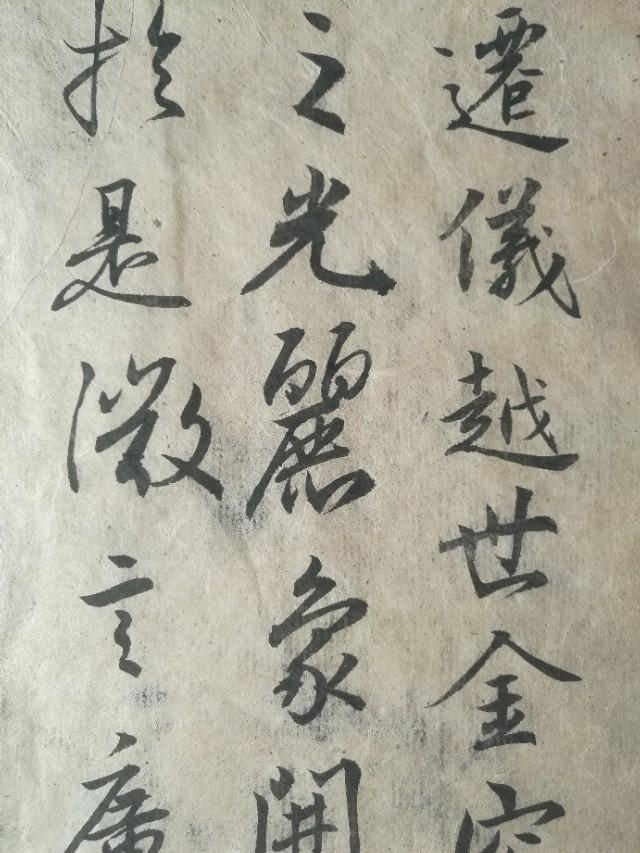 遷儀越世金容
之光麗象開
於是微言廣